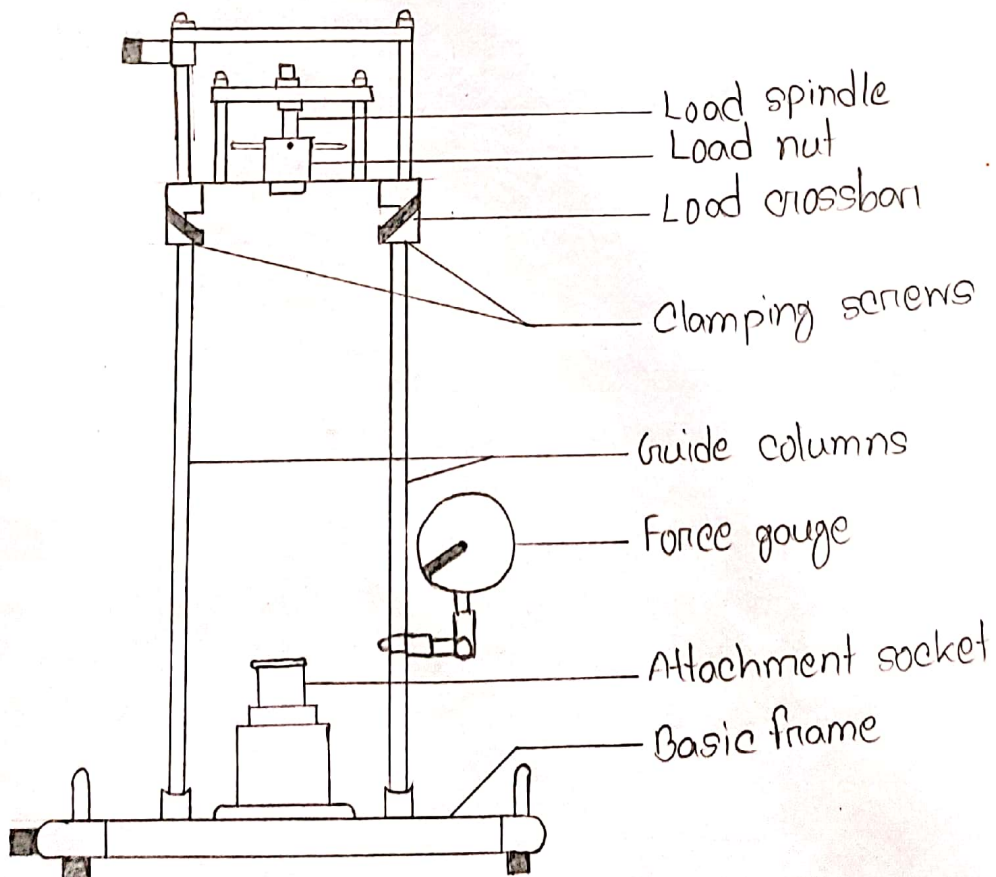 Load spindle
Load nut
Load crossbar
Clamping screws
Guide columns
Force gouge
Attachment socket
Basic frame